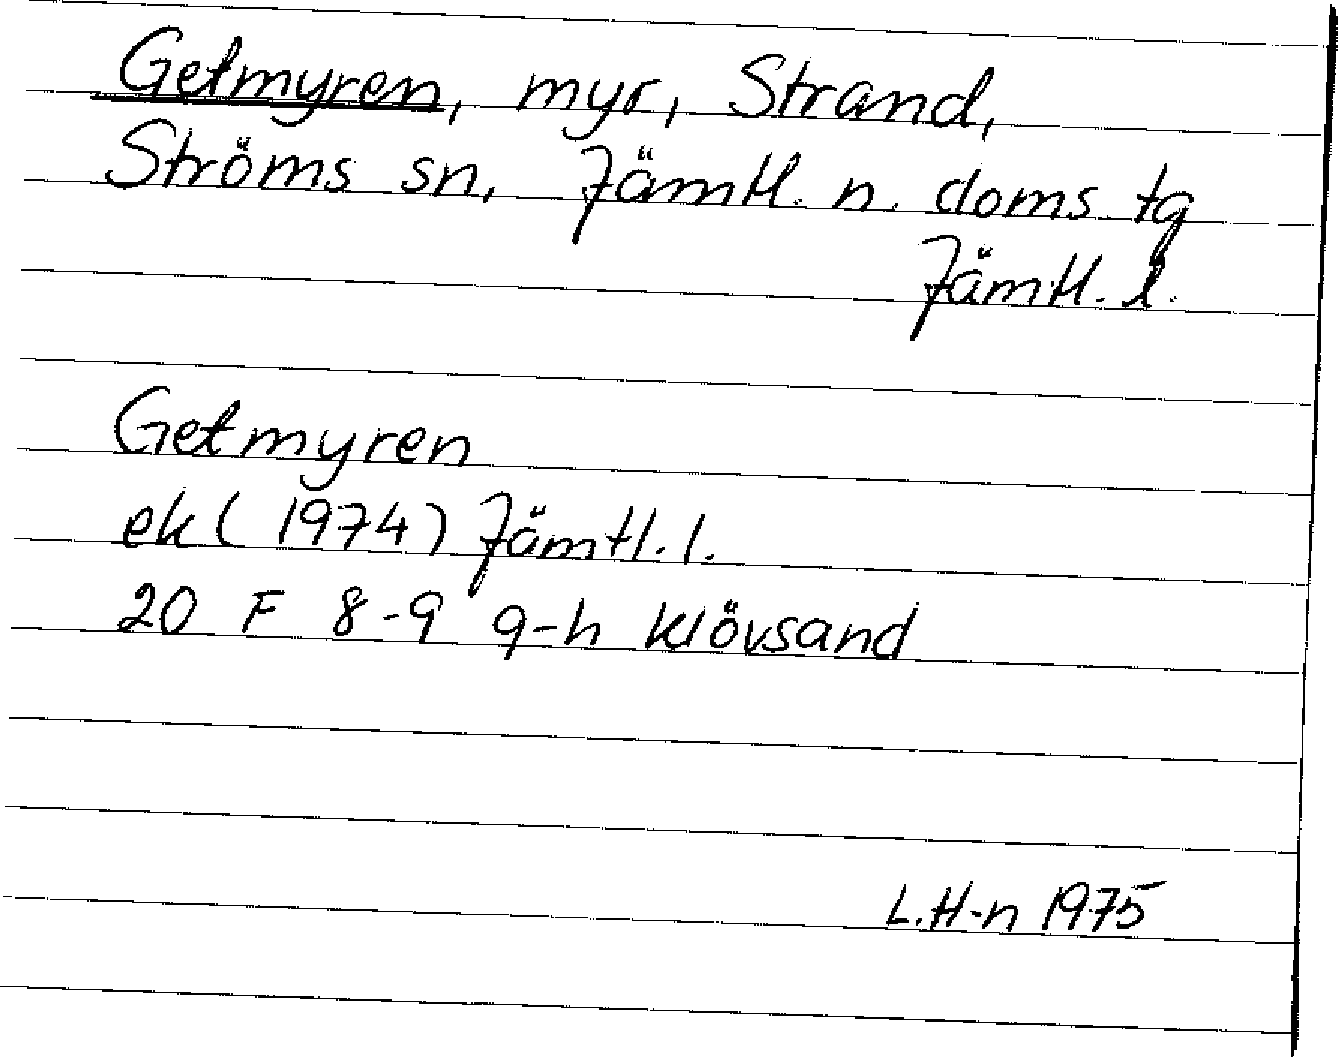 Getmyren, myr, Strand,
Ströms sn, Jämtl. n. doms. tg
Jämtl. l.
Getmyren
ek (1974) Jämtl. l.
20 F 8-9 g-h Klövsand
L.H-n 1975